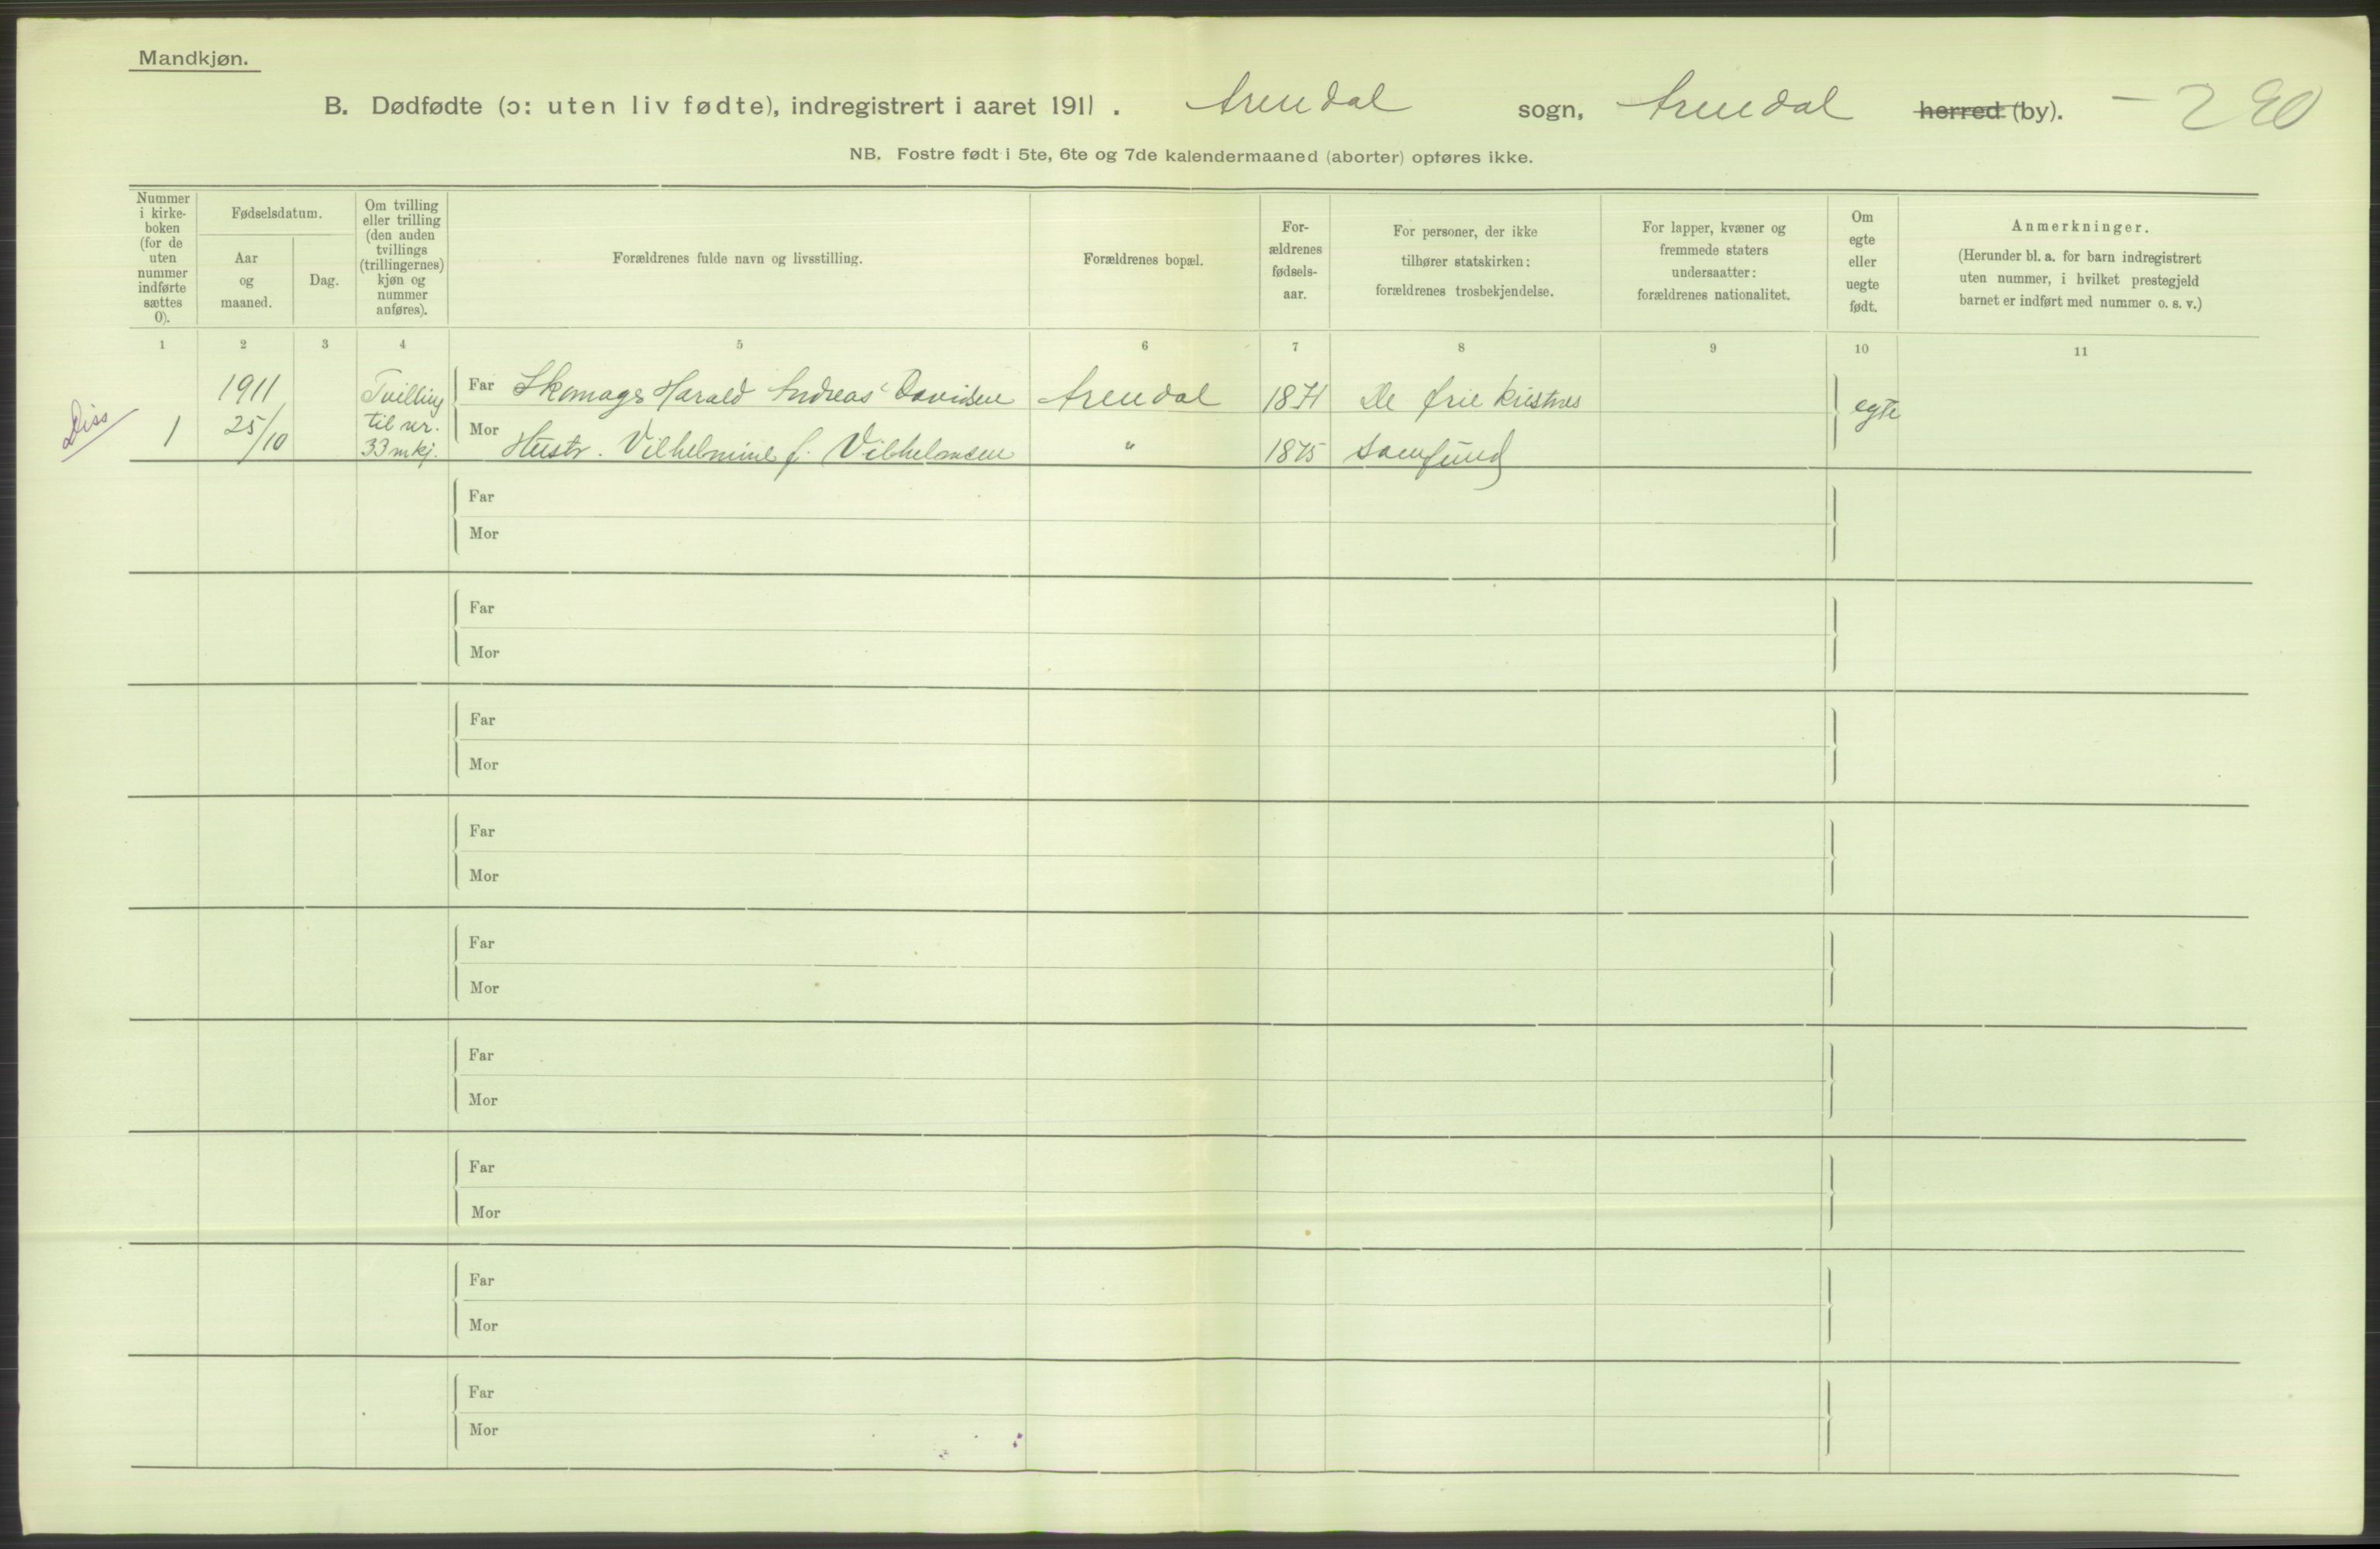 Mandkjøn.
B. Dødfødte (ɔ: uten liv fødte), indregistrert i aaret 1911. Arendal sogn, Arendal herred (by). – 290
NB. Fostre født i 5te, 6te og 7de kalendermaaned (aborter) opføres ikke.
Nummer
i kirke-
boken
(for de
uten
nummer
indførte
sættes
0).
Fødselsdatum.
Aar
og
maaned.
Dag.
Om tvilling
eller trilling
(den anden
tvillings
(trillingernes)
kjøn og
nummer
anføres).
Forældrenes fulde navn og livsstilling.
Forældrenes bopæl.
For-
ældrenes
fødsels-
aar.
For personer, der ikke
tilhører statskirken:
forældrenes trosbekjendelse.
For lapper, kvæner og
fremmede staters
undersaatter:
forældrenes nationalitet.
Om
egte
eller
uegte
født.
Anmerkninger.
(Herunder bl. a. for barn indregistrert
uten nummer, i hvilket prestegjeld
barnet er indført med nummer o. s. v.)
1 2 3 4 5 6 7 8 9 10 11
Diss
1
1911
25/10
Tvilling
til nr.
33 mkj.
Far Skomager Harald Andreas Davidsen Arendal 1871 De frie kristnes egte
Mor Hustr. Vilhelmine f. Vilhelmsen " 1875 samfund
Far
Mor
Far
Mor
Far
Mor
Far
Mor
Far
Mor
Far
Mor
Far
Mor
Far
Mor
Far
Mor